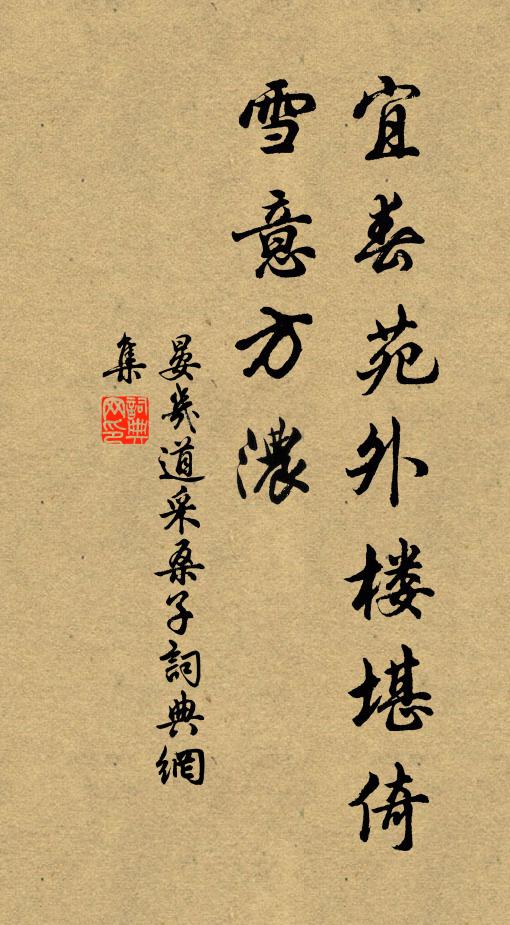 宜春苑外楼堪倚
雪意方濃
晏幾道采桑子詞典網
集
詞典
网印